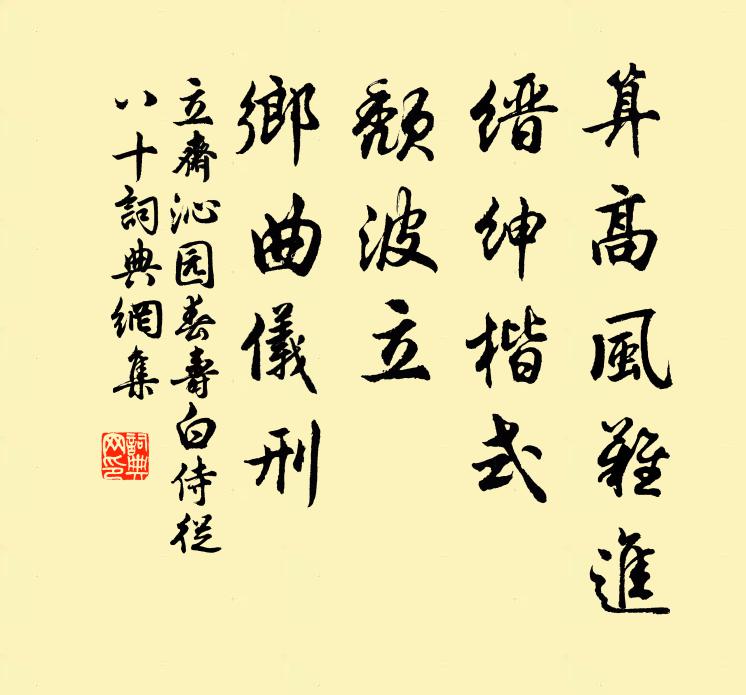 算高風難進
縉紳楷式
頹波立
鄉曲儀刑
立齋沁园春壽白侍從
八十詞典網集
詞典
网印